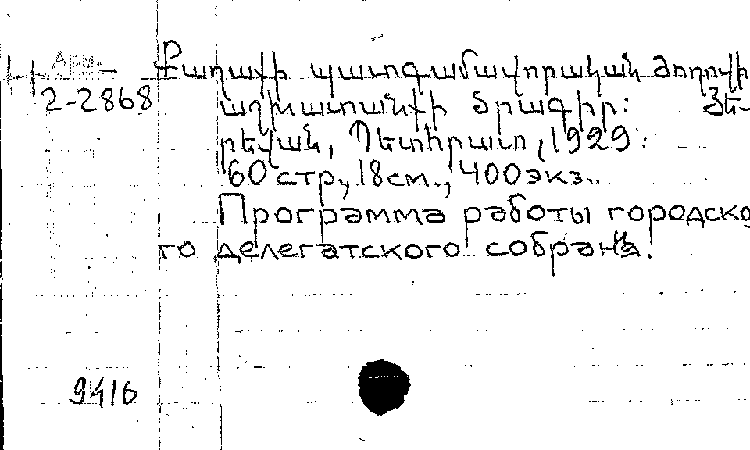 Арм.
2-2868
Քաղաքի պատգամավորական ժողովի
աշխատանքի ծրագիր: Յե-
րեվան, Պետհրատ, 1929.
60 стр., 18 см., 400 экз..
Программа работы городско
го делегатского собрания.
9416